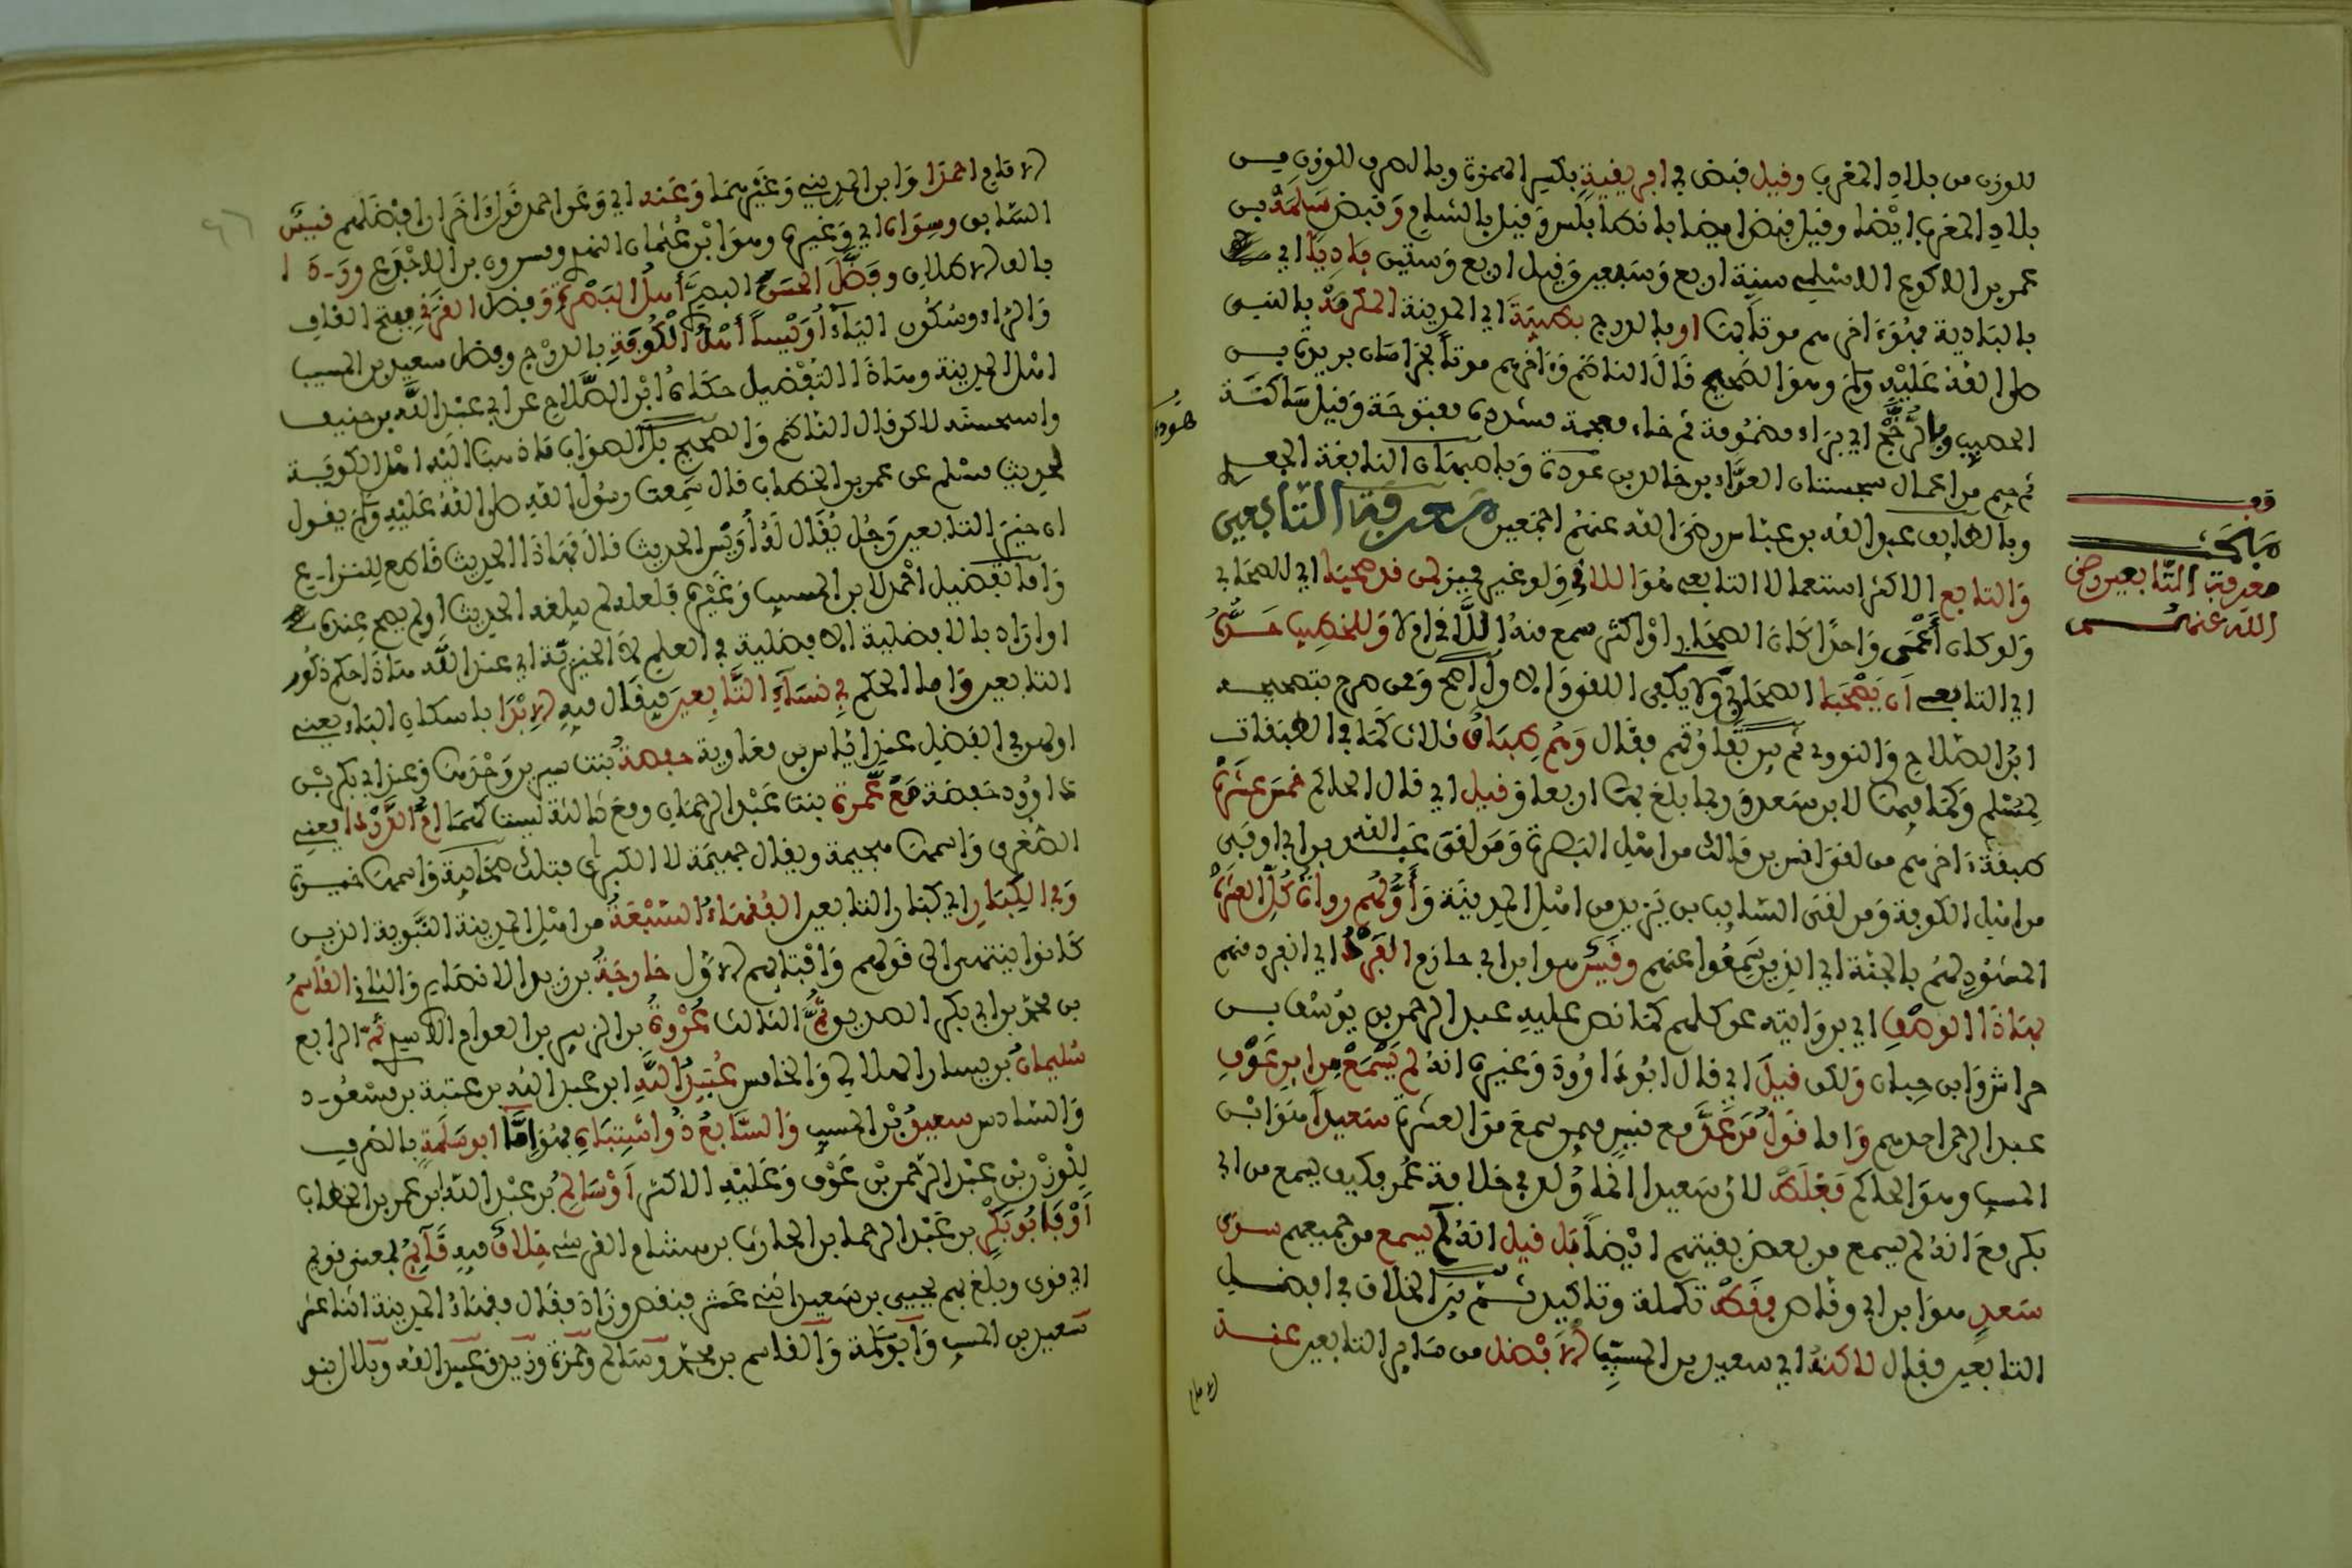 للوزن من بلاد المغرب وقيل قبض في افريقية بكسر الهمزة وبالصرف للوزن من
بلاد المغرب ايضا وقيل قبض ايضا بانطابلس وقيل بالشام وقبض سلمة بن
عمر بن الاكوع الاسلمي سنة اربع وسبعين وقيل اربع وستين باديا اي
بالبادية فهو اخرهم موتا بها او بالدرج بطيبة اي المدينة المكرمة بالنبي
صلى الله عليه وسلم وهو الصحيح قال الناظم واخرهم موتا بخراسان بريدة بن
الحصيب وبالرخج اي براء مضمومة ثم خاء معجمة مشددة مفتوحة وقيل ساكنة
ثم جيم من اعمال سجستان العداء بن خالد بن هوذة وباصبهان النابغة الجعدي
وبالطايف عبد الله بن عباس رضي الله عنهم اجمعين معرفة التابعين
والتابع الاكثر استعمالا التابعي هو اللاقي ولو غير مميز لمن قد صحبا اي للصحابي
ولو كان أعمى واحدا كان الصحابي او اكثر سمع منه اللاقي ام لا وللخطيب حده
اي التابعي ان يصحبا الصحابي ولا يكفي اللقو والاول اصح وممن صرح بتصحيحه
ابن الصلاح والنووي ثم بين تفاوتهم فقال وهم طباق ثلاث كما في الطبقات
لمسلم وكما فيها لابن سعد وربما بلغ بها اربعا وقيل اي قال الحاكم خمس عشرة
طبقة اخرهم من لقي انس بن مالك من اهل البصرة ومن لقي عبد الله بن ابي اوفى
من اهل الكوفة ومن لقي السايب بن يزيد من اهل المدينة وأولهم رواة كل العشرة
المشهود لهم بالجنة اي الذين سمعوا عنهم وقيس هو ابن ابي حازم الفرد اي انفرد منهم
بهذا الوصف اي بروايته عن كلهم كما نص عليه عبد الرحمن بن يوسف بن
خراش وابن حبان ولكن قيل اي قال ابو داوود وغيره انه لم يسمع من ابن عوف
عبد الرحمن احدهم واما قول من عد مع قيس فيمن سمع من العشرة سعيدا هو ابن
المسيب وهو الحاكم فغلط لان سعيدا انما ولد في خلافة عمر فكيف يسمع من ابي
بكر ومع انه لم يسمع من بعض بقيتهم ايضا بل قيل انه لم يسمع من جميعهم سوى
سعد هو ابن ابي وقاص فقط تكملة وتاكيد ثم بين الخلاف في افضل
التابعين فقال لاكنه اي سعيد بن المسيب الافضل من ساير التابعين عند
الامام
هوذة
قف
مبحث
معرفة التابعين رضي
الله عنهم
الامام احمد وابن المديني وغيرهما وعنه اي وعن احمد قول اخر ان افضلهم قيس
السابق وسواه اي وغيره وهو ابو عثمان النهدي ومسروق بن الاجدع ورد ا
بالف الاطلاق وفضل الحسن البصري أهل البصرة وفضل القرني بفتح القاف
والراء وسكون الياء أويسا أهل الكوفة بالدرج وفضل سعيد بن المسيب
اهل المدينة وهذا التفضيل حكاه ابن الصلاح عن ابي عبد الله بن خفيف
واستحسنه لاكن قال الناظم والصحيح بل الصواب ما ذهب اليه اهل الكوفة
لحديث مسلم عن عمر بن الخطاب قال سمعت رسول الله صلى الله عليه وسلم يقول
ان خير التابعين رجل يقال له أويس الحديث قال فهذا الحديث قاطع للنزاع
واما تفضيل احمد لابن المسيب وغيره فلعله لم يبلغه الحديث او لم يصح عنده
او اراد بالافضلية الافضلية في العلم لا الخيرية اي عند الله هذا حكم ذكور
التابعين واما الحكم في نساء التابعين فيقال فيه الابدا باسكان الباء يعني
اولهن في الفضل عند اياس بن معاوية حفصة بنت سيرين وحدها وعند ابي بكر بن
داوود حفصة مع عمرة بنت عبد الرحمان ومع ثالثة ليست كهما ام الدردا يعني
الصغرى واسمها هجيمة ويقال جهيمة لا الكبرى فتلك صحابية واسمها خيرة
وفي الكبار اي كبار التابعين الفقهاء السبعة من اهل المدينة النبوية الذين
كانوا ينتهى الى قولهم وافتايهم الاول خارجة بن زيد الانصاري والثاني القاسم
بن محمد بن ابي بكر الصديق ثم الثالث عروة بن الزبير بن العوام الاسدي ثم الرابع
سليمان بن يسار الهلالي والخامس عبيد الله ابن عبد الله بن عتبة بن مسعود
والسادس سعيد بن المسيب والسابع ذو اشتباه فهو اما ابو سلمة بالصرف
للوزن بن عبد الرحمن بن عوف وعليه الاكثر أو سالم بن عبد الله ابن عمر بن الخطاب
أو فابو بكر بن عبد الرحمان بن الحارث بن هشام القرشي خلاف فيه قايم لمعنى قولهم
اي قوى وبلغ بهم يحيى بن سعيد اثني عشر فنقص وزاد فقال فقهاء المدينة اثنا عشر
سعيد بن المسيب وابو سلمة والقاسم بن محمد وسالم وحمزة وزيد وعبيد الله وبلال بنو